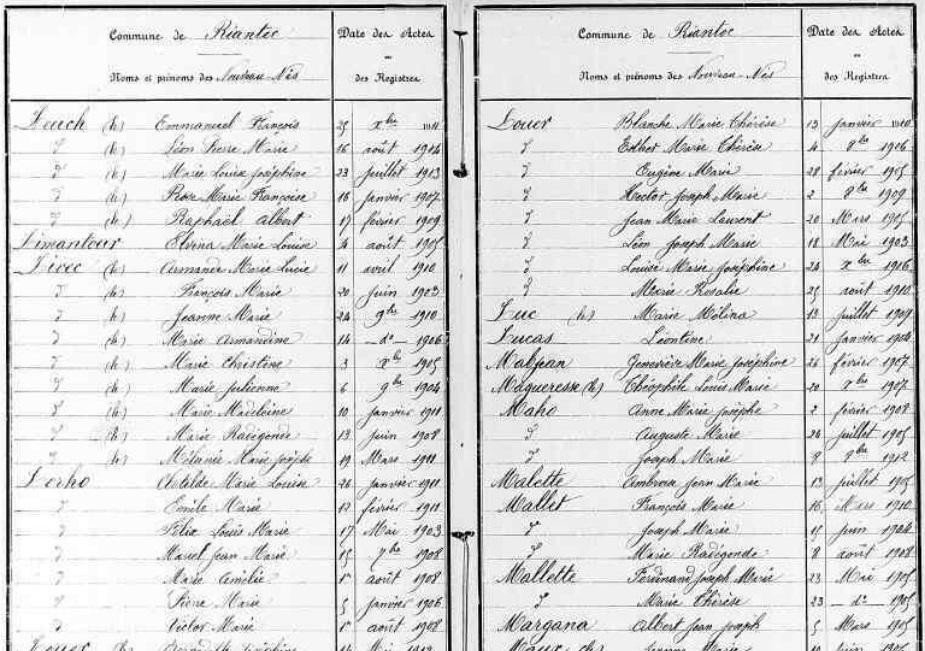 Commune de Riantec
Date des Actes
ou
Noms et prénoms des Nouveau-Nés
des Registres
Leuch (h) Emmanuel François 25 xbre 1911
d (h) Léon Pierre Marie 16 août 1914
d (h) Marie Louise Joséphine 23 juillet 1913
d (h) Rose Marie Françoise 18 janvier 1907
d (h) Raphaël Albert 17 février 1909
Limantour Elvina Marie Louise 4 août 1905
Livec (h) Armande Marie Lucie 11 avril 1910
d (h) François Marie 20 juin 1903
d (h) Jeanne Marie 24 9bre 1910
d (h) Marie Armandine 14 - do - 1906
d (h) Marie Christine 3 xbre 1905
d (h) Marie Julienne 6 9bre 1904
d (h) Marie Madeleine 10 janvier 1911
d (h) Marie Radégonde 13 juin 1908
d (h) Mélanie Marie Josèphe 19 Mars 1911
Lorho Clotilde Marie Louise 26 janvier 1911
d Emile Marie 12 février 1911
d Félix Louis Marie 17 Mai 1903
d Marcel Jean Marie 15 7bre 1908
d Marie Amélie 1er août 1908
d Pierre Marie 5 janvier 1906
d Victor Marie 1er août 1908
Commune de Riantec
Date des Actes
ou
Noms et prénoms des Nouveau-Nés
des Registres
Louer Blanche Marie Thérèse 13 janvier 1910
d Esther Marie Thérèse 4 8bre 1906
d Eugène Marie 28 février 1905
d Hector Joseph Marie 2 8bre 1909
d Jean Marie Laurent 20 Mars 1905
d Léon Joseph Marie 18 Mai 1903
d Louise Marie Joséphine 24 xbre 1906
d Marie Rosalie 25 août 1910
Luc (h) Marie Mélina 13 juillet 1907
Lucas Léontine 21 janvier 1904
Mabjean Geneviève Marie Joséphine 26 février 1907
Magueresse (h) Théophile Louis Marie 20 xbre 1907
Maho Anne Marie Josèphe 2 février 1908
d Auguste Marie 24 juillet 1905
d Joseph Marie 8 8bre 1912
Malette Ambroise Jean Marie 13 juillet 1905
Mallet François Marie 16 Mars 1910
d Joseph Marie 15 juin 1904
d Marie Radégonde 8 août 1908
Mallette Ferdinand Joseph Marie 23 Mai 1905
d Marie Thérèse 23 - do - 1905
Margana Albert Jean Joseph 5 Mars 1905